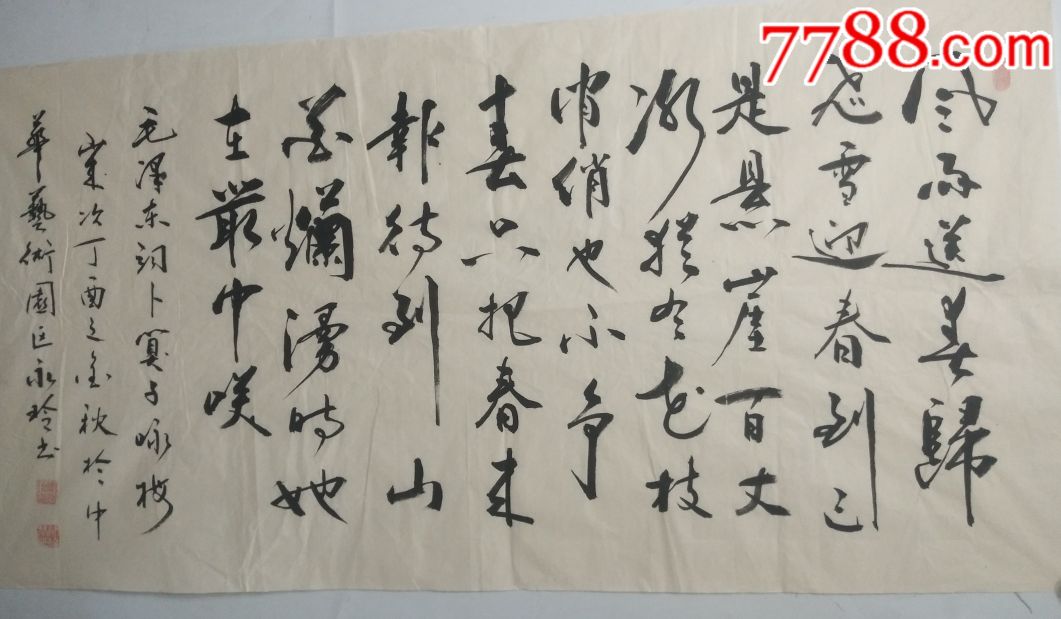 7788.com
风雨送春歸
飞雪迎春到已
是悬崖百丈
冰犹有花枝
俏俏也不争
春只把春来
報待到山
花爛漫时她
在叢中咲
毛澤东词卜算子咏梅
歲次丁酉之金秋於中
華藝術園匡永玲书